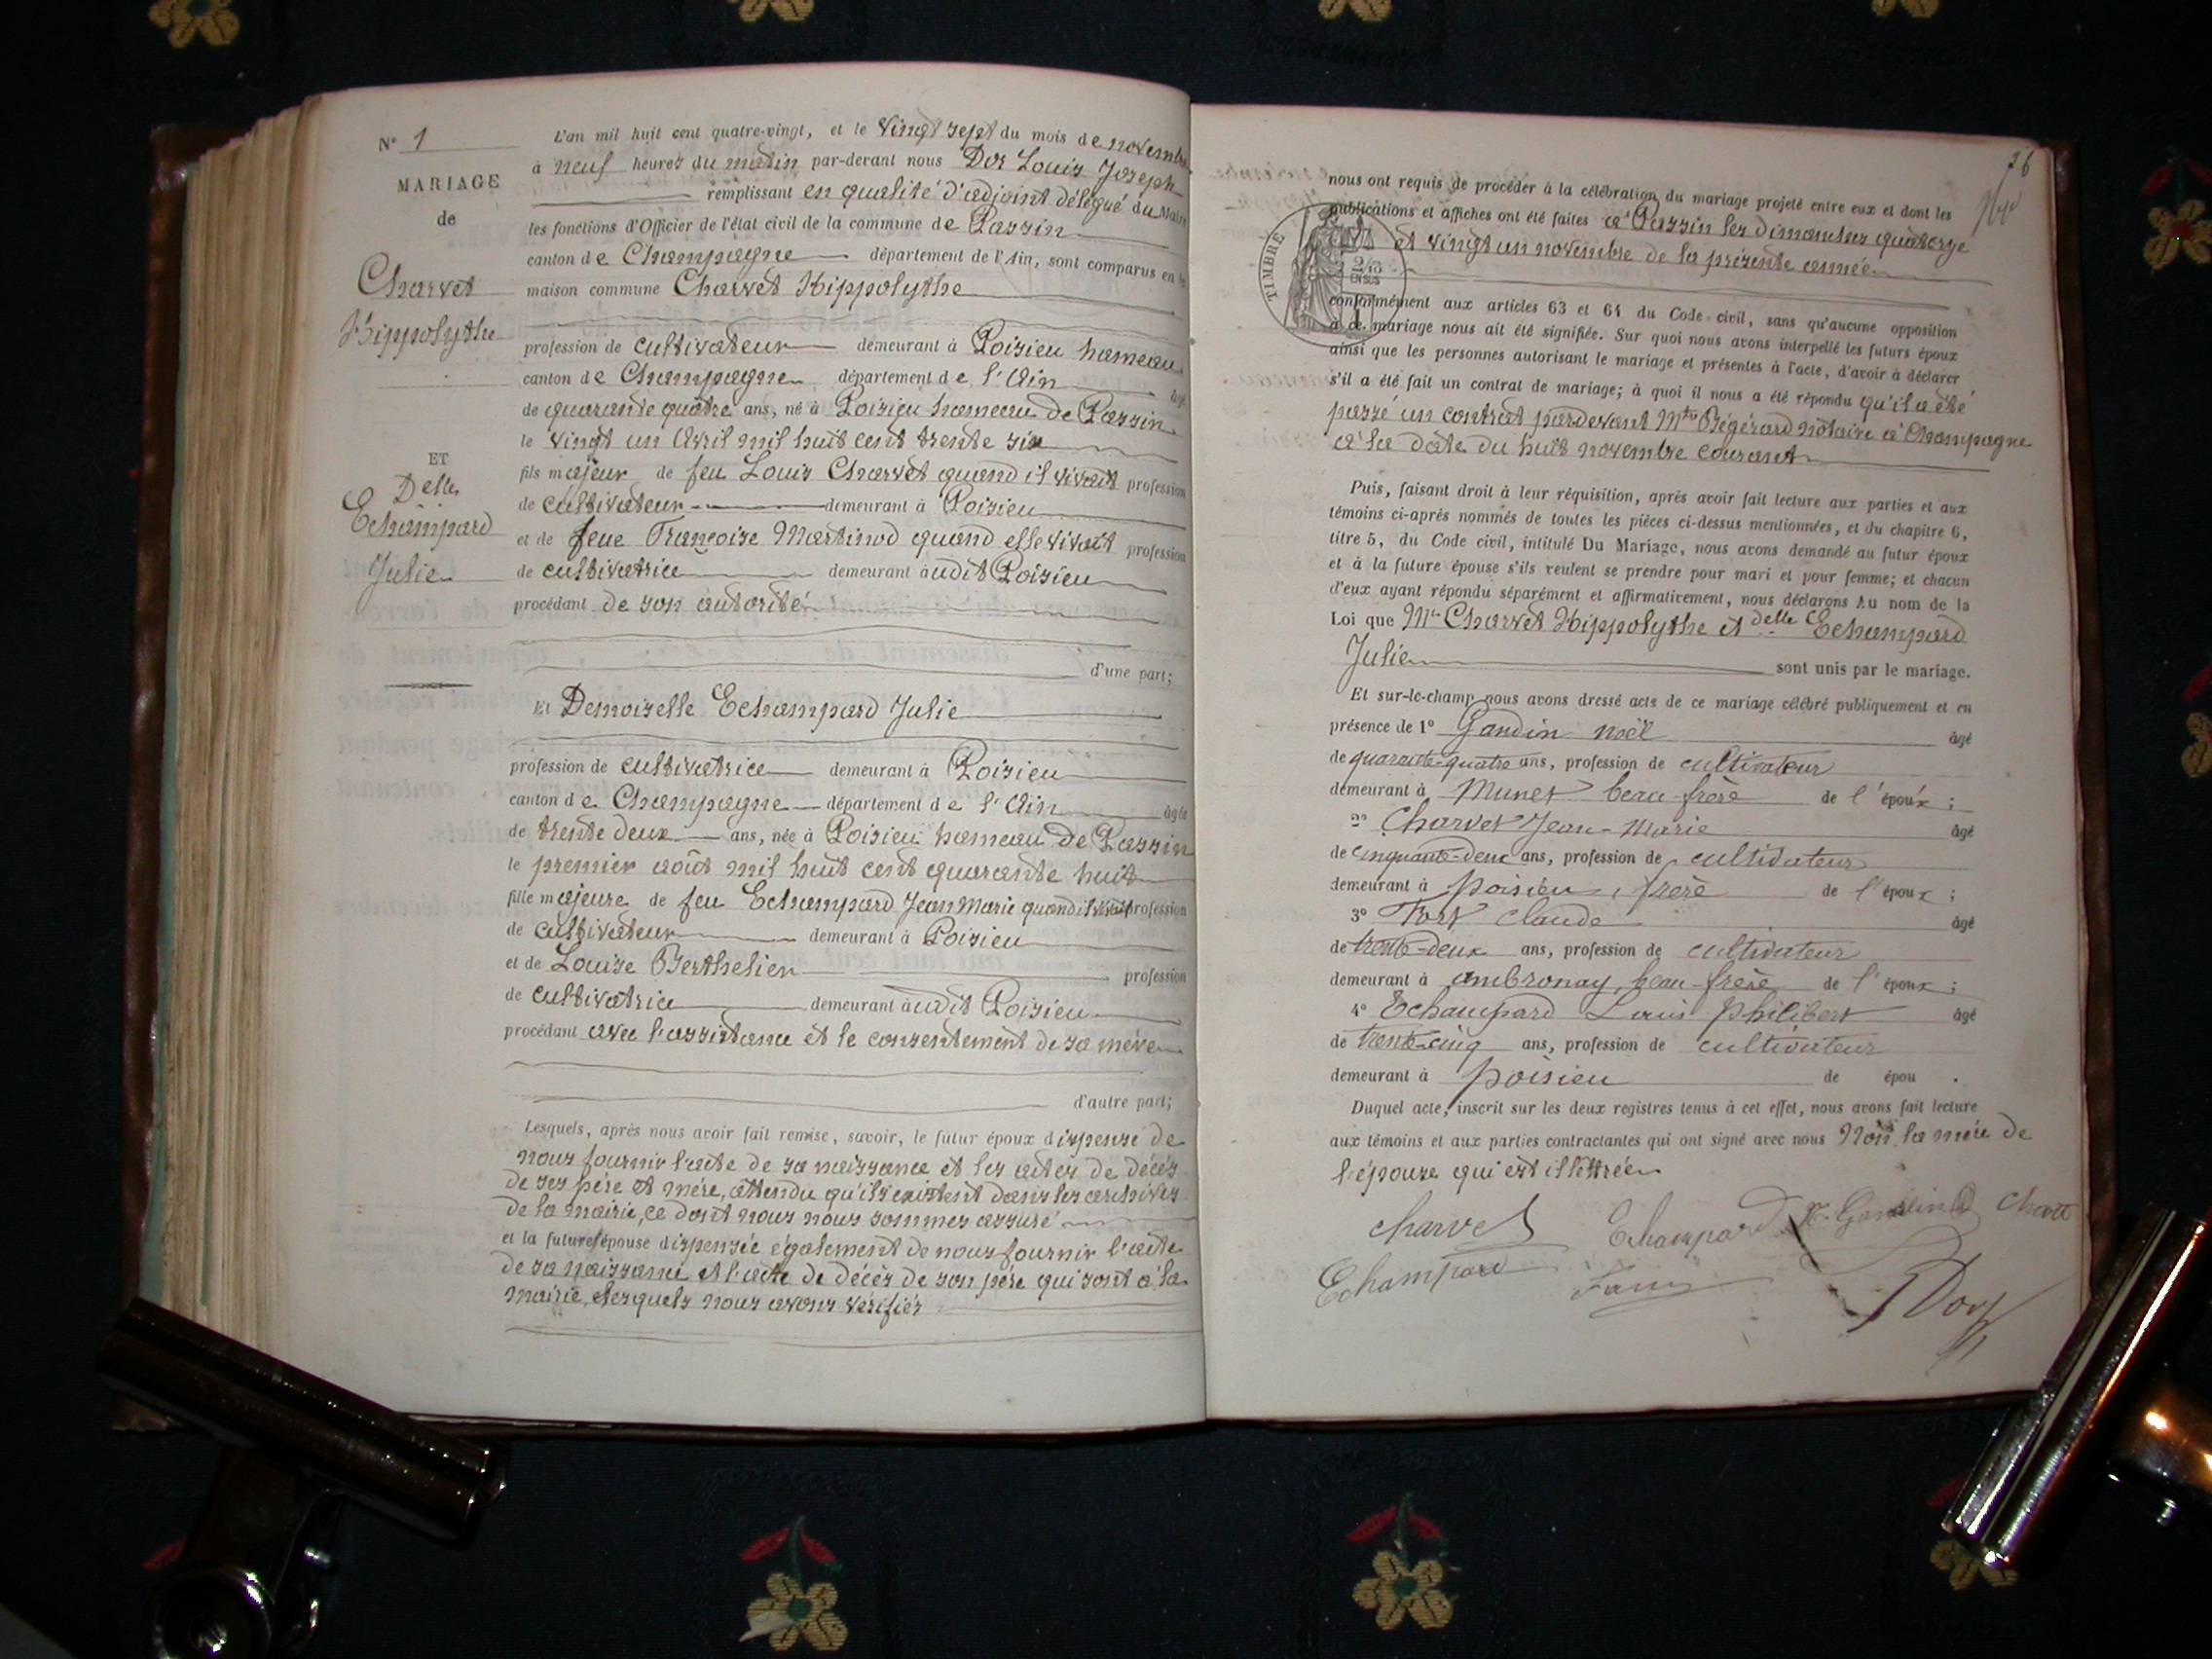 N° 1
MARIAGE
de
Charvet
Hippolythe
ET
Delle
Echampard
Julie
L'an mil huit cent quatre-vingt, et le vingt sept du mois de novembre
à neuf heures du matin par-devant nous Dor Louis Joseph
remplissant en qualité d'adjoint délégué du Maire
les fonctions d'Officier de l'état civil de la commune de Passin
canton de Champagne département de l'Ain, sont comparus en la
maison commune Charvet Hippolythe
profession de cultivateur demeurant à Poisieu hameau
canton de Champagne département de l'Ain âgé
de quarante quatre ans, né à Poisieu hameau de Passin
le vingt un Avril mil huit cent trente six
fils majeur de feu Louis Charvet quand il vivait profession
de cultivateur demeurant à Poisieu
et de feue Françoise Martinod quand elle vivait profession
de cultivatrice demeurant àudit Poisieu
procédant de son autorité
d'une part;
Et Demoiselle Echampard Julie
profession de cultivatrice demeurant à Poisieu
canton de Champagne département de l'Ain âgée
de trente deux ans, née à Poisieu hameau de Passin
le premier août mil huit cent quarante huit
fille majeure de feu Echampard Jean Marie quand il vivait profession
de cultivateur demeurant à Poisieu
et de Louise Berthelier profession
de cultivatrice demeurant àudit Poisieu
procédant avec l'assistance et le consentement de sa mère
d'autre part;
Lesquels, après nous avoir fait remise, savoir, le futur époux dispensé de
nous fournir l'acte de sa naissance et les actes de décès
de ses père et mère, attendu qu'ils existent dans les archives
de la mairie, ce dont nous nous sommes assuré
et la future épouse dispensée également de nous fournir l'acte
de sa naissance et l'acte de décès de son père qui sont à la
mairie, lesquels nous avons vérifiés
26
nous ont requis de procéder à la célébration du mariage projeté entre eux et dont les
publications et affiches ont été faites à Passin les dimanches quatorze
et vingt un novembre de la présente année
TIMBRE
2/10
EN SUS
conformément aux articles 63 et 64 du Code civil, sans qu'aucune opposition
à ce mariage nous ait été signifiée. Sur quoi nous avons interpellé les futurs époux
ainsi que les personnes autorisant le mariage et présentes à l'acte, d'avoir à déclarer
s'il a été fait un contrat de mariage; à quoi il nous a été répondu qu'il a été
passé un contrat pardevant Mtre Bégérard notaire à Champagne
à la date du huit novembre courant
Puis, faisant droit à leur réquisition, après avoir fait lecture aux parties et aux
témoins ci-après nommés de toutes les pièces ci-dessus mentionnées, et du chapitre 6,
titre 5, du Code civil, intitulé Du Mariage, nous avons demandé au futur époux
et à la future épouse s'ils veulent se prendre pour mari et pour femme; et chacun
d'eux ayant répondu séparément et affirmativement, nous déclarons Au nom de la
Loi que Mr Charvet Hippolythe et delle Echampard
Julie sont unis par le mariage.
Et sur-le-champ nous avons dressé acts de ce mariage célébré publiquement et en
présence de 1° Gandin noël âgé
de quarante-quatre ans, profession de cultivateur
demeurant à Munet beau-frère de l'époux ;
2° Charvet Jean-Marie âgé
de cinquante-deux ans, profession de cultivateur
demeurant à poisieu, frère de l'époux ;
3° Fort claude âgé
de trente-deux ans, profession de cultivateur
demeurant à ambronay, beau-frère de l'époux ;
4° Echampard Louis philibert âgé
de trente-cinq ans, profession de cultivateur
demeurant à poisieu de épou .
Duquel acte, inscrit sur les deux registres tenus à cet effet, nous avons fait lecture
aux témoins et aux parties contractantes qui ont signé avec nous Non la mère de
l'épouse qui est illéttrée
charvet Echampard N. Gandin Charvet
Echampard Dor